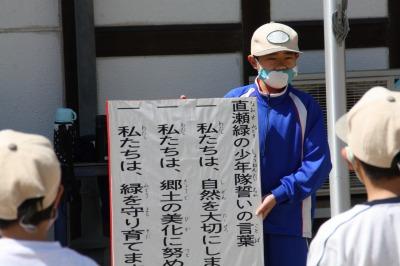 直瀬緑の少年隊誓いの言葉
一 私たちは、自然を大切にしま
一 私たちは、郷土の美化に努め
一 私たちは、緑を守り育てま